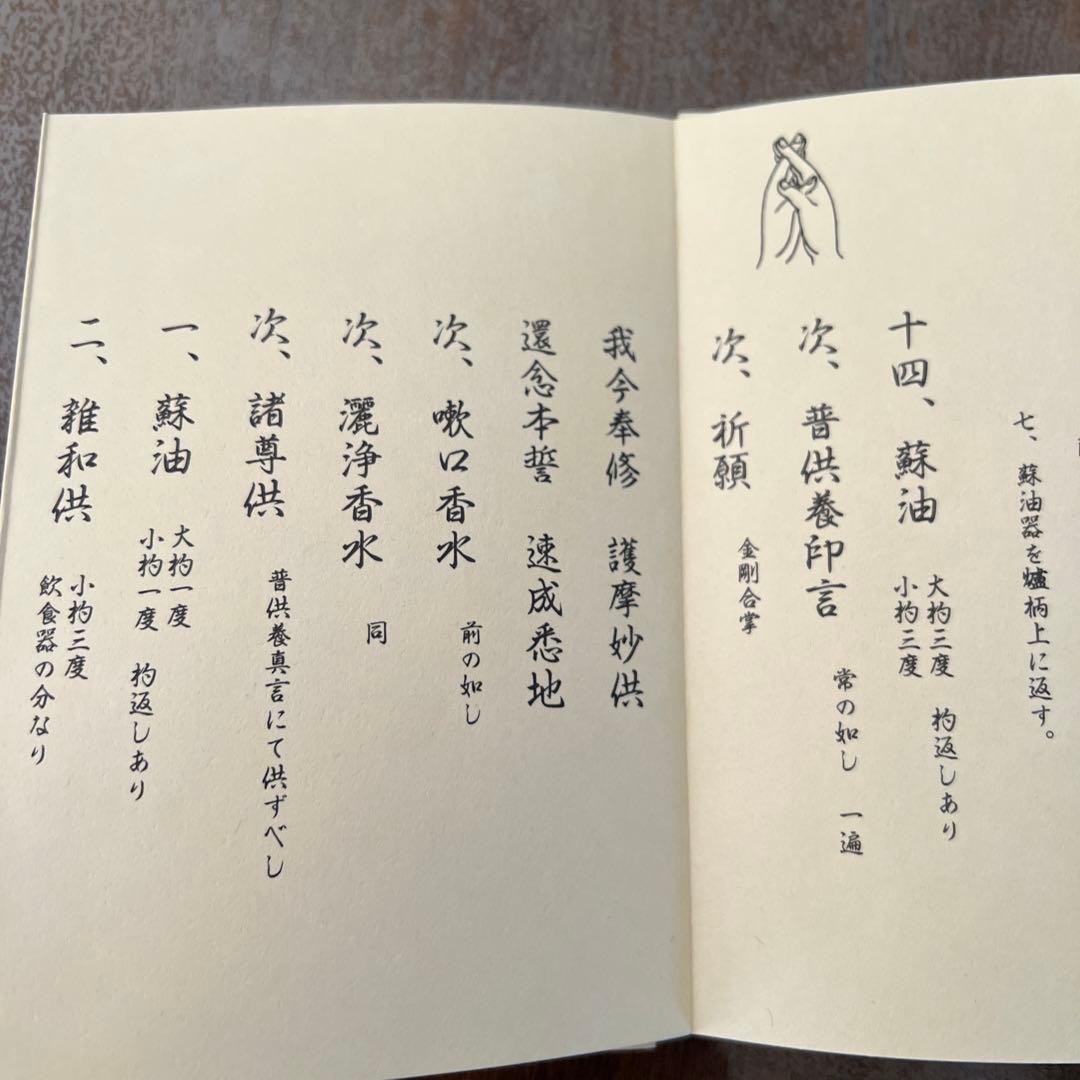 七、蘇油器を爐柄上に返す。
十四、蘇油
大杓三度
小杓三度
杓返しあり
次、普供養印言
常の如し 一遍
次、祈願
金剛合掌
我今奉修 護摩妙供
還念本誓 速成悉地
次、嗽口香水
前の如し
次、灑浄香水
同
次、諸尊供
普供養真言にて供ずべし
一、蘇油
大杓一度
小杓一度
杓返しあり
二、雑和供
小杓三度
飲食器の分なり